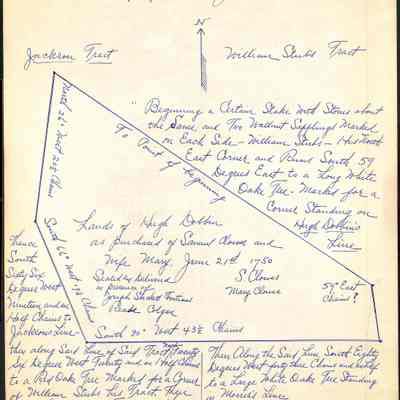 N
Jackson Tract
William Stubs Tract
"Beginning a Certain Stake With Stones about
the Same and Two Wallnut Sapplings Marked
on Each Side - William Stubs - His North
East Corner and Runs South 59
Degrees East to a Long White
Oake Tree - Marked for a
Corner Standing on
Hugh Dobbins
Line
To Point of beginning
North 26° West 21½ Chains
South 66° West 19½ Chains
Lands of Hugh Dobbin
as purchased of Samuel Clowse and
Wife Mary, June 21st 1750
Sealed & Delivered
in presence of
Joseph
S Clowes
Mary Clowes
59° East
Chains?
South 80° West 43½ Chains
Thence
South
Sixty Six
Degrees West
Nineteen and an
Half Chains to
Jacksons Line -
they along Said Line of Said Tract North Twenty
Six Degrees West Twenty and an Half Chains
to a Red Oak Tree Marked for a Corner
of William Stubs his Tract They
Then Along the Said Line South Eighty
Degrees West forty three Chains and one half
to a Large White Oake Tree Standing
in Line